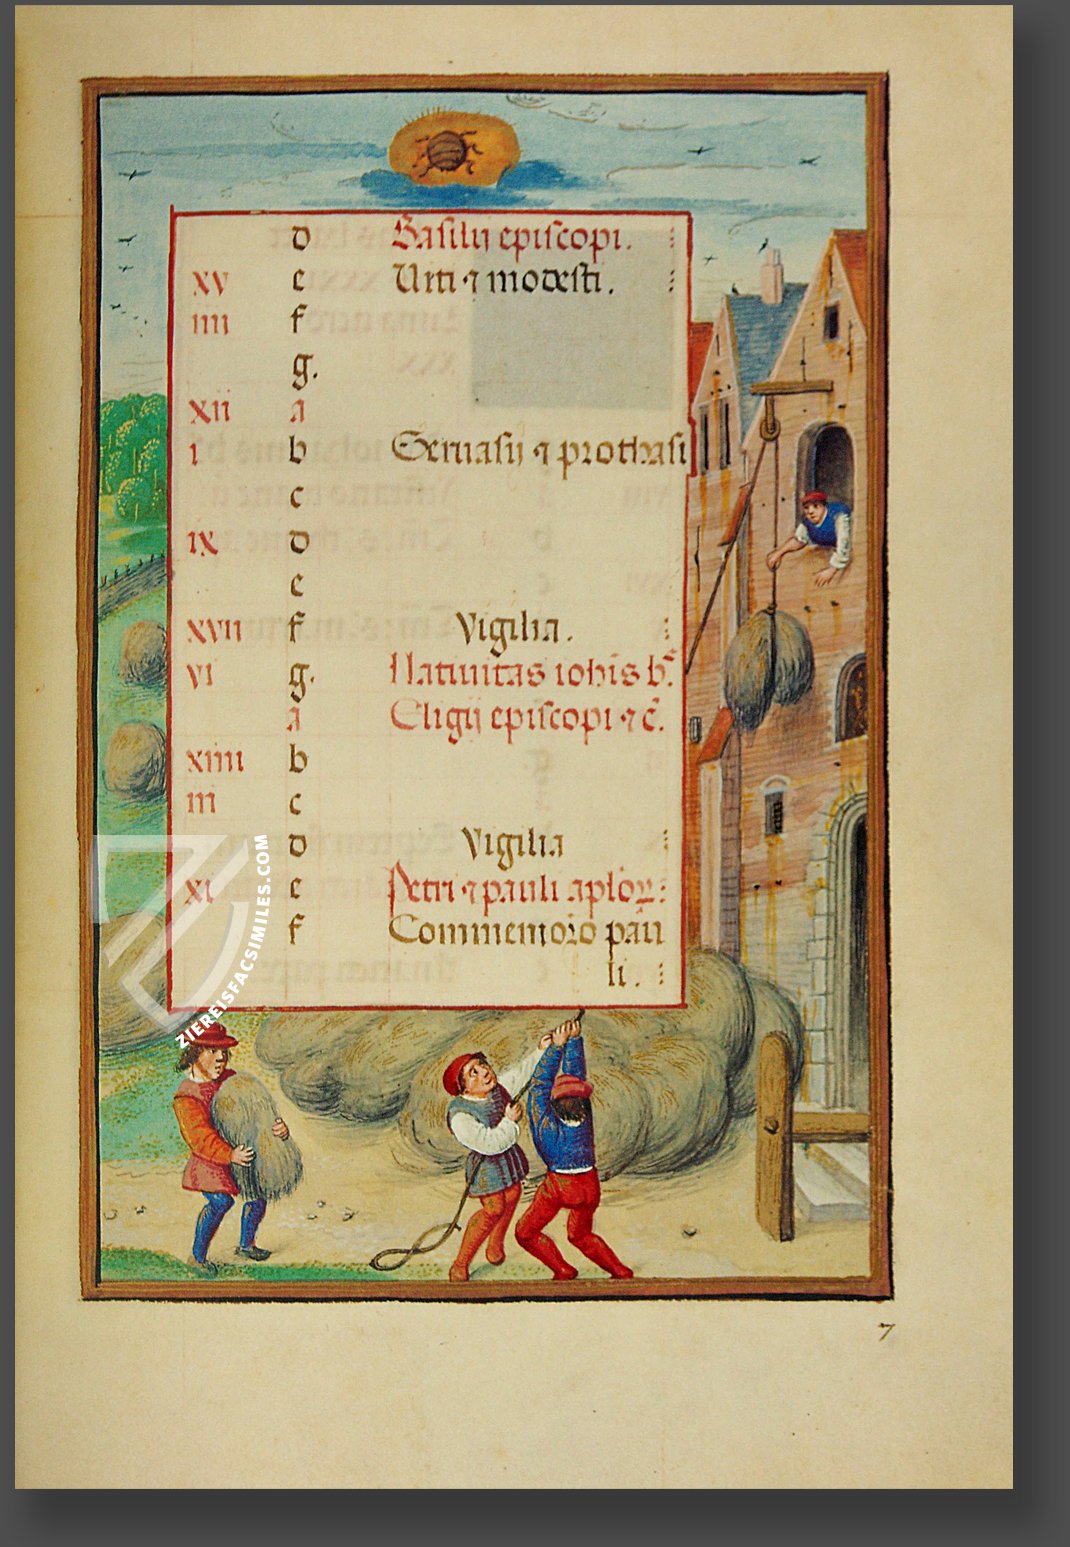 d Basilii episcopi.
xv e Viti ⁊ modesti.
iiii f
g.
xii a
i b Geruasii ⁊ prothasi
c
ix d
e
xvii f Vigilia.
vi g. Natiuitas iohīs b.
a Eligii episcopi ⁊ c̄.
xiiii b
iii c
d Vigilia
xi e Petri ⁊ pauli aplōꝝ:
f Commemoro pau
li.
ZIEREISFACSIMILES.COM
7